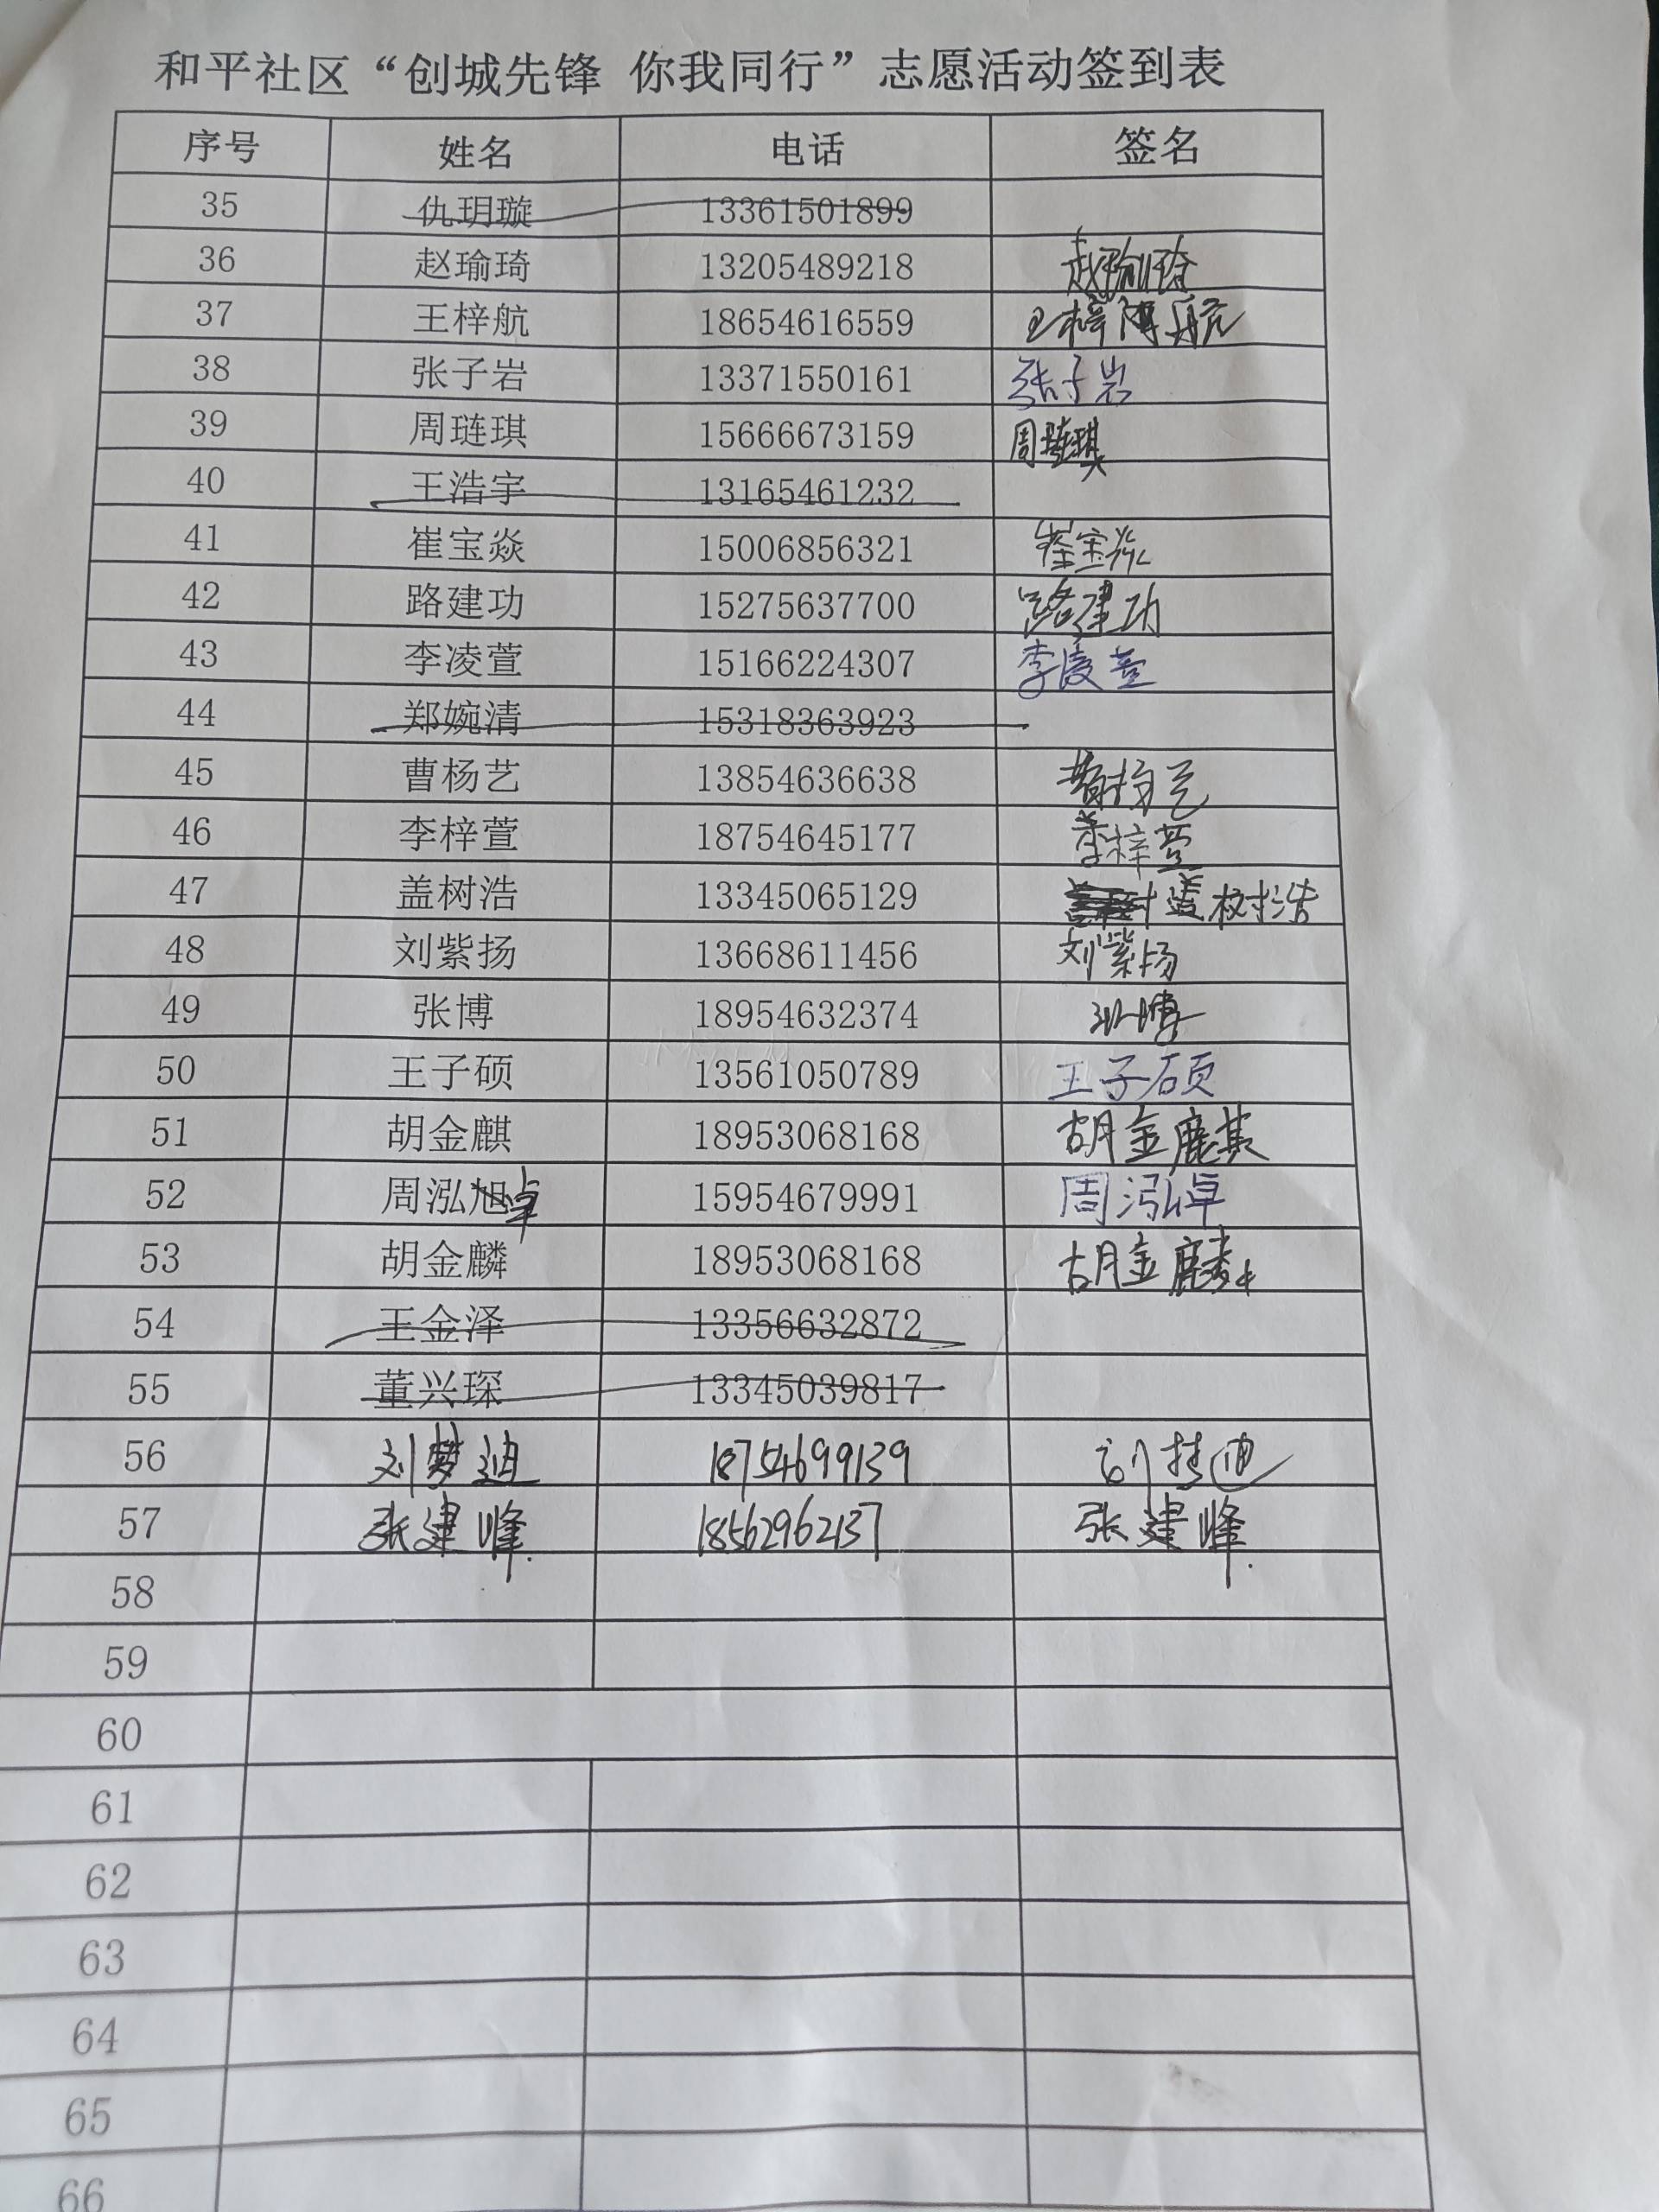 和平社区“创城先锋 你我同行”志愿活动签到表
序号 姓名 电话 签名
35 仇玥璇 13361501899
36 赵瑜琦 13205489218 赵瑜琦
37 王梓航 18654616559 王梓航
38 张子岩 13371550161 张子岩
39 周琏琪 15666673159 周琏琪
40 王浩宇 13165461232
41 崔宝焱 15006856321 崔宝焱
42 路建功 15275637700 路建功
43 李凌萱 15166224307 李凌萱
44 郑婉清 15318363923
45 曹杨艺 13854636638 曹杨艺
46 李梓萱 18754645177 李梓萱
47 盖树浩 13345065129 盖树浩
48 刘紫扬 13668611456 刘紫扬
49 张博 18954632374 张博
50 王子硕 13561050789 王子硕
51 胡金麒 18953068168 胡金麒
52 周泓旭卓 15954679991 周泓卓
53 胡金麟 18953068168 胡金麟
54 王金泽 13356632872
55 董兴琛 13345039817
56 刘梦迪 18754699139 刘梦迪
57 张建峰 18562962137 张建峰
58
59
60
61
62
63
64
65
66